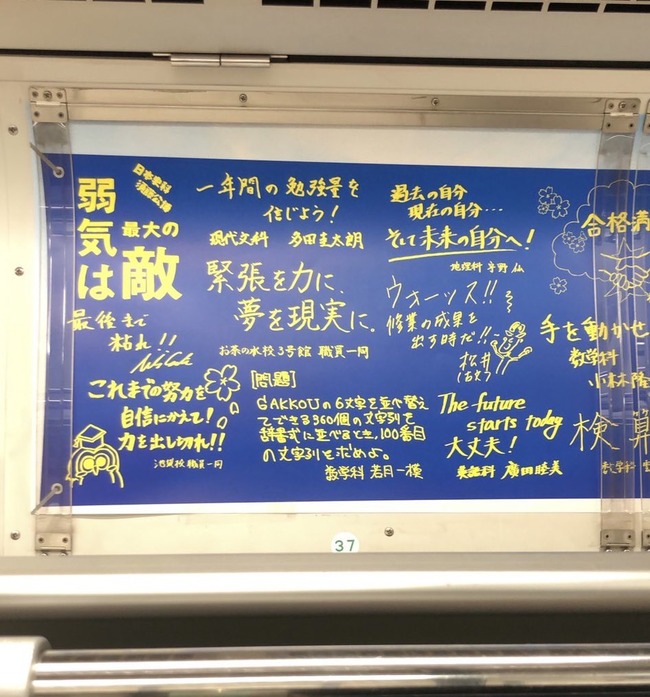 弱気は
最大の
敵
日本史科
一年間の勉強量を
信じよう!
現代文科 多田圭太朗
過去の自分
現在の自分…
そして未来の自分へ!
地理科 宇野 仙
緊張を力に、
夢を現実に。
お茶の水校3号館 職員一同
ウォーッス!!
修業の成果を
出す時だ!!
松井
最後まで
粘れ!!
これまでの努力を
自信にかえて!
力を出し切れ!!
池袋校 職員一同
[問題]
GAKKOUの6文字を並べ替え
てできる360個の文字列を
辞書式に並べるとき,100番目
の文字列を求めよ。
数学科 若月一模
The future
starts today
大丈夫!
英語科 廣田睦美
合格
手を動かせ
数学科
小林隆
検算
数学科
37